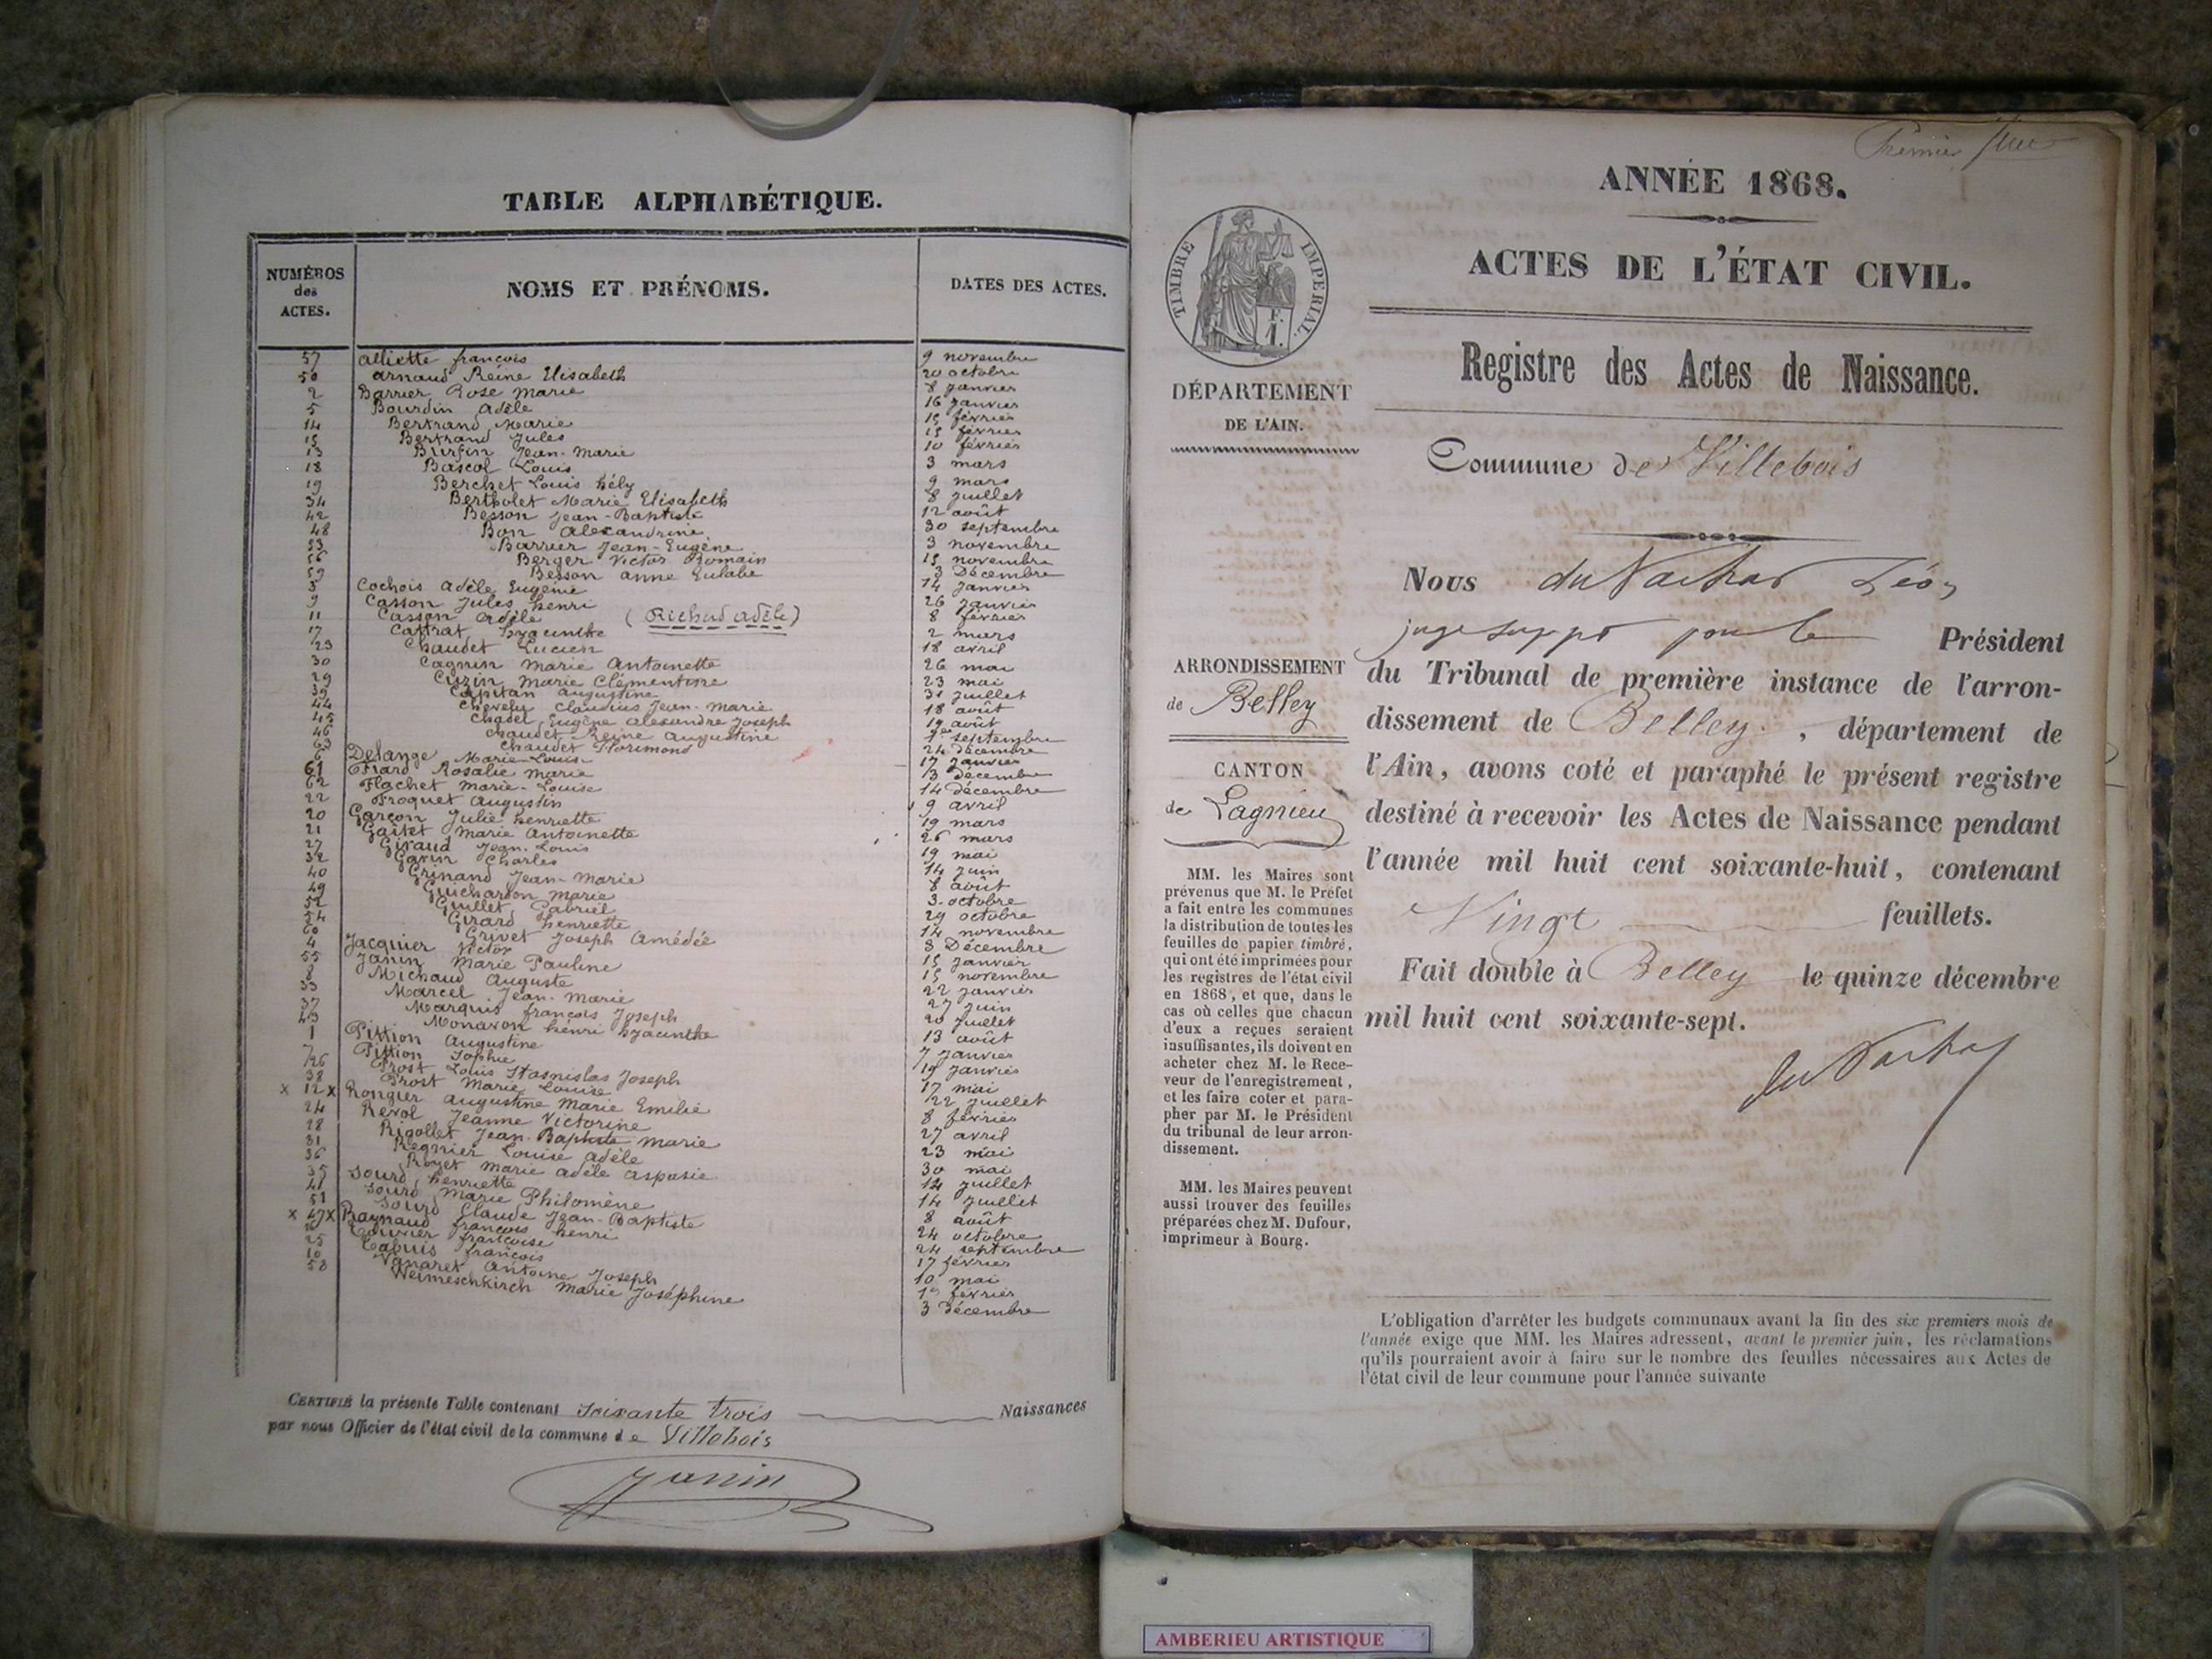 TABLE ALPHABÉTIQUE.
NUMÉROS
des
ACTES.
NOMS ET PRÉNOMS.
DATES DES ACTES.
57 Alliette françois 9 novembre
50 Arnaud Reine Elisabeth 20 octobre
2 Barrier Rose Marie 8 janvier
5 Bourdin Adèle 16 janvier
14 Bertrand Marie 15 février
15 Bertrand Jules 15 février
13 Burfin Jean-Marie 10 février
18 Bascol Louis 3 mars
19 Berchet Louis hély 9 mars
34 Bertholet Marie Elisabeth 8 juillet
42 Besson Jean-Baptiste 12 août
48 Bon Alexandrine 30 septembre
53 Barrier Jean-Eugène 3 novembre
56 Berger Victor Romain 15 novembre
59 Besson Anne Eulalie 3 Décembre
3 Cochois Adèle Eugénie 14 Janvier
9 Casson Jules henri 26 Janvier
11 Casson Adèle (Richard Adèle) 8 février
17 Cattrat hyacinthe 2 mars
23 Chaudet Lucien 18 avril
30 Cagnin Marie Antoinette 26 mai
29 Cuzin Marie Clémentine 23 mai
39 Capitan Augustine 31 juillet
44 Chevelu Claudius Jean-Marie 18 août
45 Chadel Eugène Alexandre Joseph 19 août
46 Chaudet Reine Augustine 1er septembre
63 Chaudet Florimond 24 Décembre
6 Delange Marie-Louise 17 Janvier
61 Fiard Rosalie Marie 13 décembre
62 Flachet Marie-Louise 14 décembre
22 Froquet Augustin 9 avril
20 Garçon Julie henriette 19 mars
21 Gaitet Marie Antoinette 26 mars
27 Giraud Jean-Louis 19 mai
32 Garin Charles 14 juin
40 Grinand Jean-Marie 8 août
49 Guichardon Marie 3 octobre
52 Guillet Gabriel 29 octobre
54 Girard henriette 14 novembre
60 Grivet Joseph Amédée 8 Décembre
4 Jacquier Victor 15 janvier
55 Janin Marie Pauline 15 novembre
8 Michaud Auguste 22 janvier
33 Marcel Jean-Marie 27 juin
37 Marquis françois Joseph 20 juillet
43 Monavon henri hyacinthe 13 août
1 Pittion Augustine 7 janvier
7 Pittion Sophie 19 janvier
26 Prost Louis Stasnislas Joseph 17 mai
38 Prost Marie Louise 22 juillet
x 12 x Rongier Augustine Marie Emilie 8 février
24 Revol Jeanne Victorine 27 avril
28 Rigollet Jean-Baptiste Marie 23 mai
31 Regnier Louise Adèle 30 mai
36 Royet Marie Adèle Aspasie 12 juillet
35 Sourd henriette 14 juillet
41 Sourd Marie Philomène 8 août
51 Sourd Claude Jean-Baptiste 24 octobre
x 47 x Raynaud françois henri 24 septembre
16 françoise 17 février
25 Cabuis françois 10 mai
10 Vanaret Antoine Joseph 1er février
58 Weimeschkirch Marie Joséphine 3 Décembre
CERTIFIÉ la présente Table contenant soixante trois Naissances
par nous Officier de l'état civil de la commune de Villebois
Janin
Premier
ANNÉE 1868.
ACTES DE L'ÉTAT CIVIL.
Registre des Actes de Naissance.
TIMBRE IMPÉRIAL.
DÉPARTEMENT
DE L'AIN.
Commune de Villebois
Nous Léon
juge supp pour le Président
du Tribunal de première instance de l'arron-
dissement de Belley, département de
l'Ain, avons coté et paraphé le présent registre
destiné à recevoir les Actes de Naissance pendant
l'année mil huit cent soixante-huit, contenant
Vingt feuillets.
Fait double à Belley le quinze décembre
mil huit cent soixante-sept.
ARRONDISSEMENT
de Belley
CANTON
de Lagnieu
MM. les Maires sont
prévenus que M. le Préfet
a fait entre les communes
la distribution de toutes les
feuilles de papier timbré,
qui ont été imprimées pour
les registres de l'état civil
en 1868, et que, dans le
cas où celles que chacun
d'eux a reçues seraient
insuffisantes, ils doivent en
acheter chez M. le Rece-
veur de l'enregistrement,
et les faire coter et para-
pher par M. le Président
du tribunal de leur arron-
dissement.
MM. les Maires peuvent
aussi trouver des feuilles
préparées chez M. Dufour,
imprimeur à Bourg.
L'obligation d'arrêter les budgets communaux avant la fin des six premiers mois de
l'année exige que MM. les Maires adressent, avant le premier juin, les réclamations
qu'ils pourraient avoir à faire sur le nombre des feuilles nécessaires aux Actes de
l'état civil de leur commune pour l'année suivante
AMBERIEU ARTISTIQUE